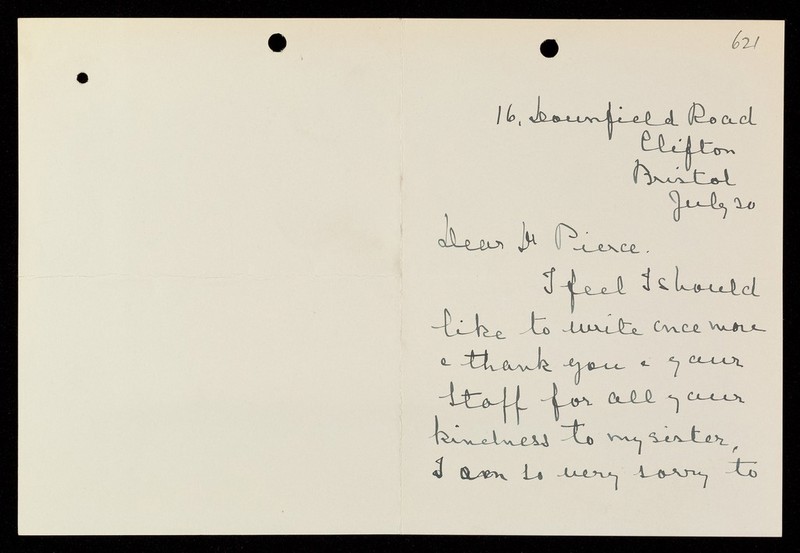 621
16, Downfield Road
Clifton
Bristol
July 20
Dear Dr Pierce.
I feel I should
like to write once more
& thank you & your
staff for all your
kindness to my sister,
I am so very sorry to